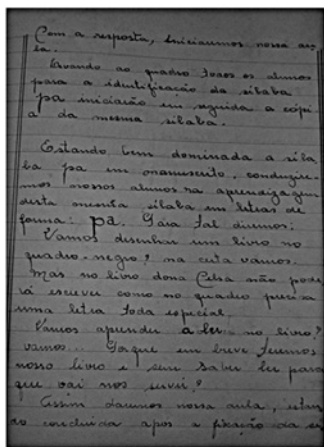 Com a resposta, iniciaremos nossa au-
la.
Levando ao quadro todos os alunos
para a identificação da sílaba
pa iniciarão em seguida a cópi-
a da mesma sílaba.
Estando bem dominada a síla-
ba pa em manuscrito, conduzire-
mos nossos alunos na aprendizagem
desta mesma sílaba em letras de
forma: pa. Para tal diremos:
Vamos desenhar um livro no
quadro-negro? na certa vamos.
Mas no livro dona Celsa não pode-
rá escrever como no quadro precisa
uma letra toda especial.
Vamos aprender a ler no livro?
vamos... Porque em breve teremos
nosso livro e sem saber ler para
que vai nos servir?
Assim daremos nossa aula, estan-
do concluída após a fixação da